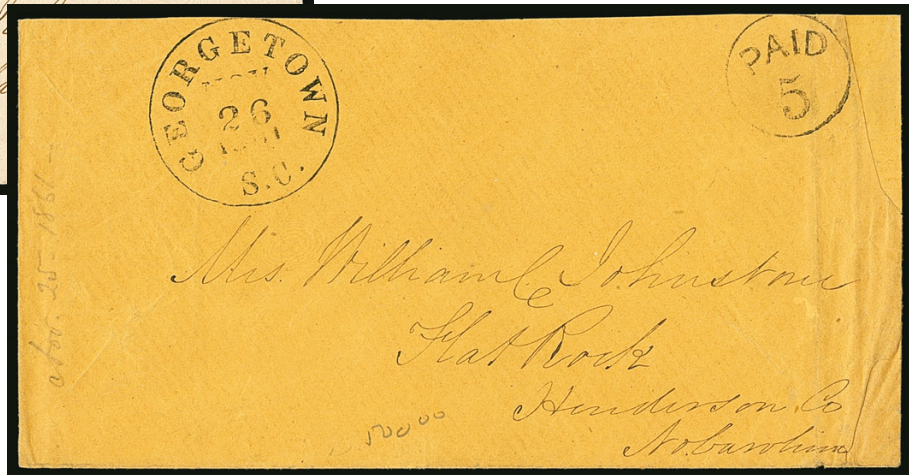 GEORGETOWN
NOV
26
1861
S.C.
PAID
5
Mrs. William C. Johnstone
Flat Rock
Henderson Co
No. Carolina
Nov. 25 - 1861 -